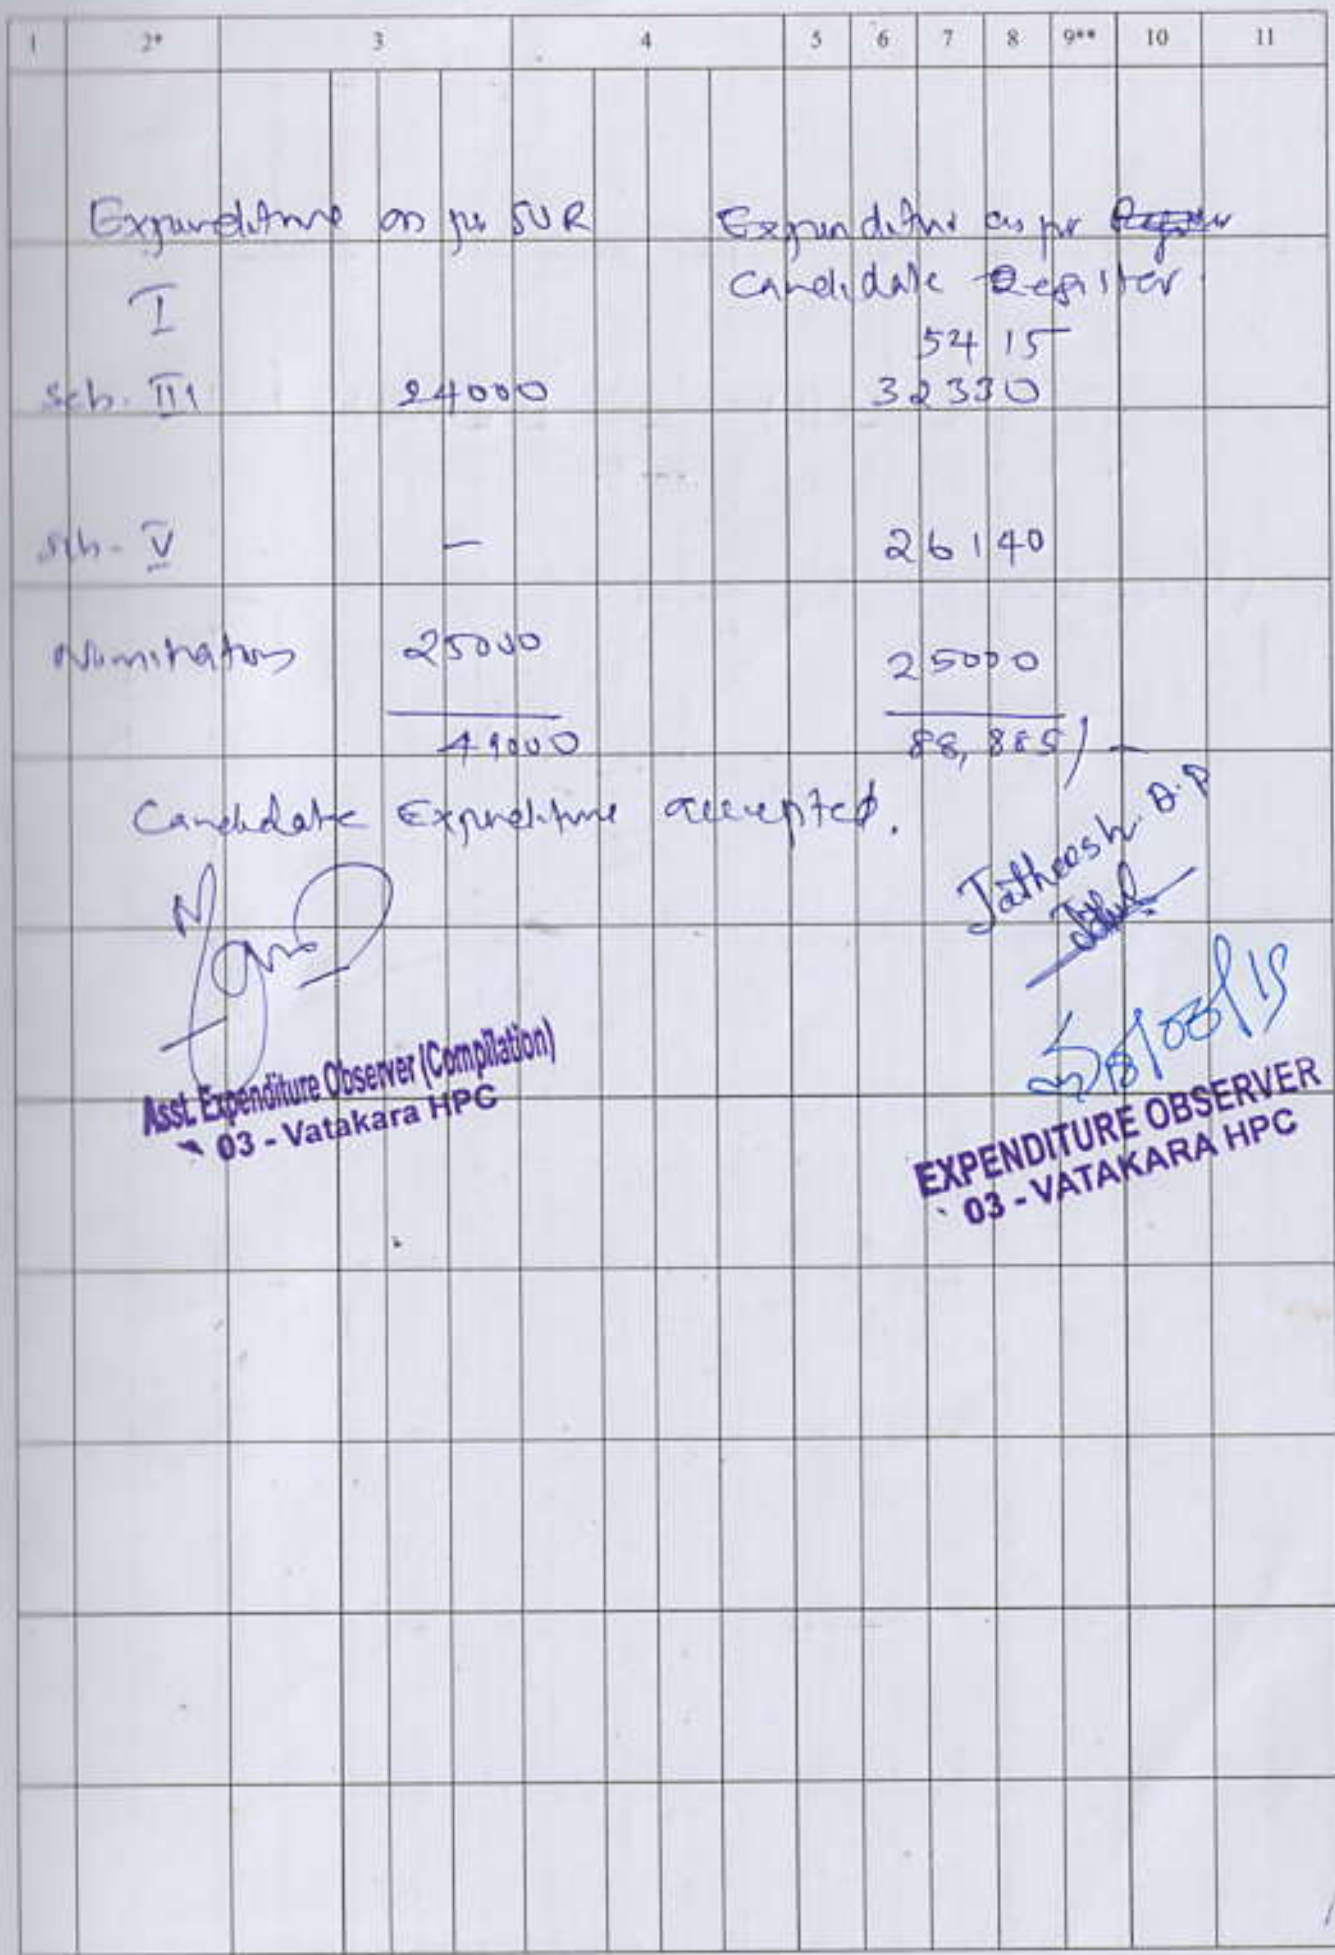 1 2* 3 4 5 6 7 8 9** 10 11
Expenditure as per SOR Expenditure as per
Candidate Register
I 5415
Sch. III 24000 32330
Sch- V — 26140
Nomination 25000 25000
49000 88,885/-
Candidate Expenditure accepted.
Jatheesh. A.P
Asst. Expenditure Observer (Compilation)
03 - Vatakara HPC
EXPENDITURE OBSERVER
03 - VATAKARA HPC